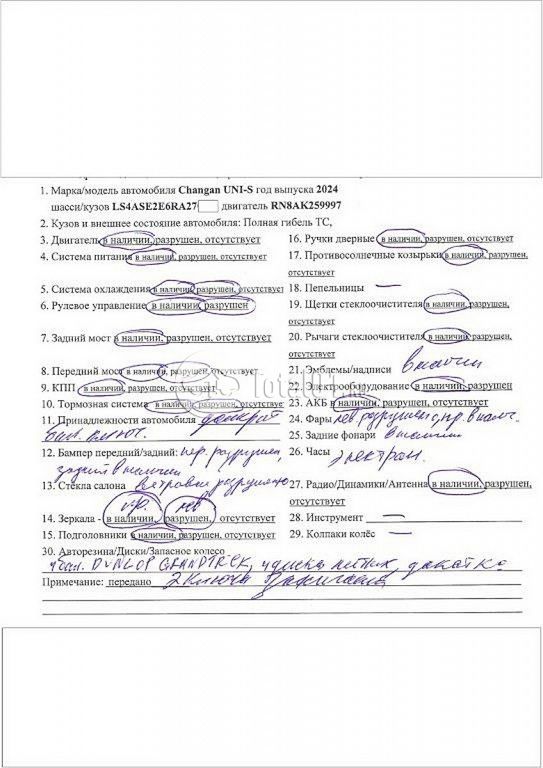 1. Марка/модель автомобиля Changan UNI-S год выпуска 2024
шасси/кузов LS4ASE2E6RA27 двигатель RN8AK259997
2. Кузов и внешнее состояние автомобиля: Полная гибель ТС,
3. Двигатель в наличии, разрушен, отсутствует
4. Система питания в наличии, разрушен, отсутствует
5. Система охлаждения в наличии, разрушен, отсутствует
6. Рулевое управление в наличии, разрушен
7. Задний мост в наличии, разрушен, отсутствует
8. Передний мост в наличии, разрушен, отсутствует
9. КПП в наличии, разрушен, отсутствует
10. Тормозная система в наличии, разрушен, отсутствует
11. Принадлежности автомобиля домкрат
бал. ключ.
12. Бампер передний/задний: пер. разрушен,
задний в наличии
13. Стекла салона ветровое разрушено
пр. лев
14. Зеркала - в наличии, разрушен, отсутствует
15. Подголовники в наличии, разрушен, отсутствует
16. Ручки дверные в наличии, разрушен, отсутствует
17. Противосолнечные козырьки в наличии, разрушен,
отсутствует
18. Пепельницы —
19. Щетки стеклоочистителя в наличии, разрушен,
отсутствует
20. Рычаги стеклоочистителя в наличии, разрушен,
отсутствует
21. Эмблемы/надписи в налич
22. Электрооборудование в наличии, разрушен
23. АКБ в наличии, разрушен, отсутствует
24. Фары лев. разрушена, пр. в налич.
25. Задние фонари в наличии
26. Часы электрон.
27. Радио/Динамики/Антенна в наличии, разрушен,
отсутствует
28. Инструмент —
29. Колпаки колёс —
30. Авторезина/Диски/Запасное колесо
4 бал. DUNLOP GRANDTREK, 4 диска литых, докатка
Примечание: передано 2 ключа зажигания